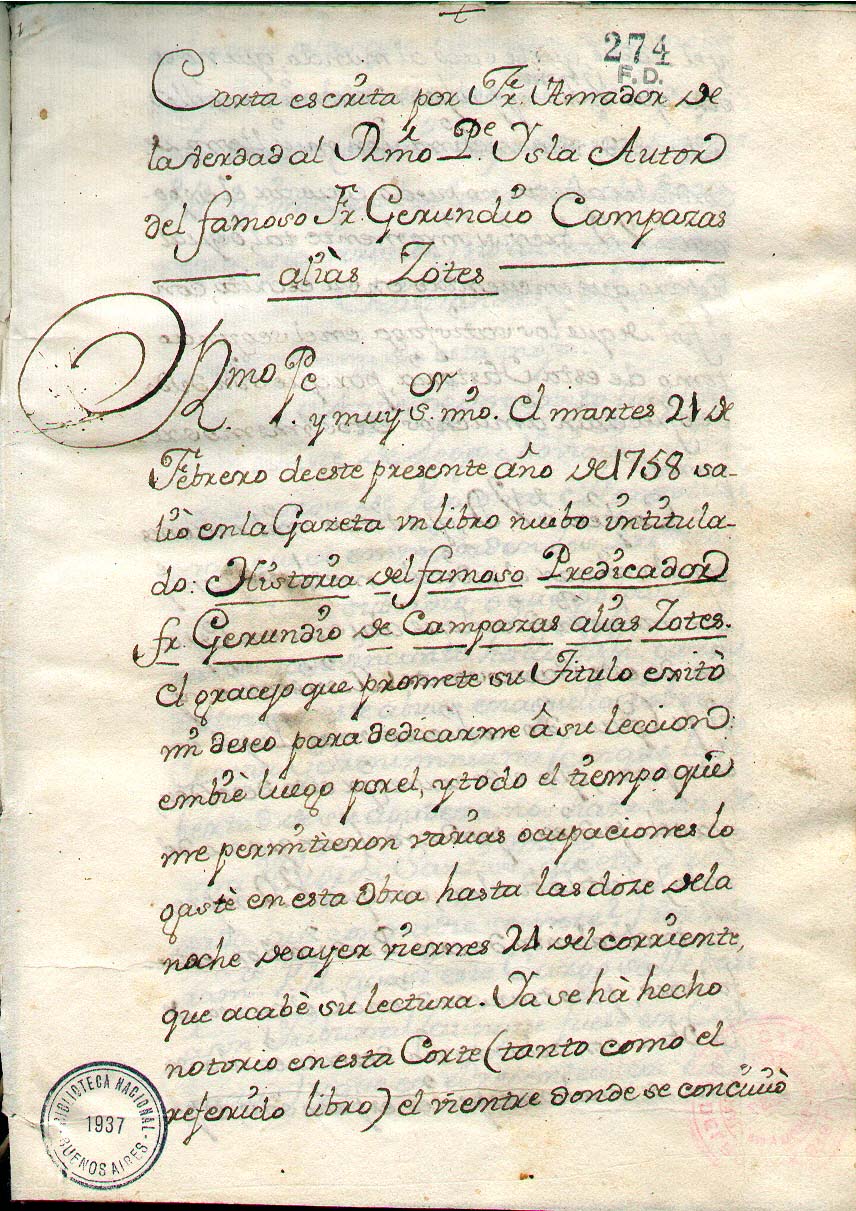 274
F.D.
Carta escrita por Fr. Amador de
la Verdad al Rmo. Pe. Ysla Autor
del famoso Fr. Gerundio Campazas
aliàs Zotes
Rmo Pe
y muy Sr. mio. El martes 21 de
Febrero de este presente año de 1758 sa-
liò en la Gazeta vn libro nuebo intitula-
do: Historia del famoso Predicador
fr. Gerundio de Campazas alias Zotes.
El gracejo que promete su Titulo exitò
mi deseo para dedicarme â su leccion:
embiè luego por el, y todo el tiempo que
me permitieron varias ocupaciones lo
gastè en esta Obra hasta las doze de la
noche de ayer viernes 24 del corriente,
que acabè su lectura. Ya se hà hecho
notorio en esta Corte (tanto como el
referido libro) el vientre donde se conciviò
BIBLIOTECA NACIONAL
1937
BUENOS AIRES